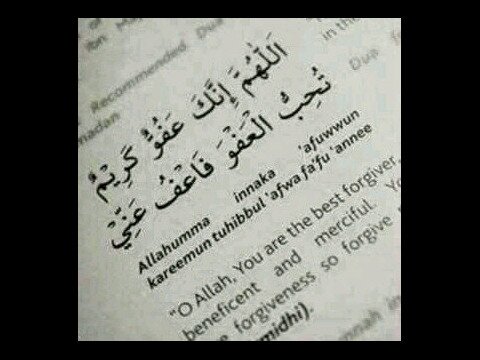 of
Ibn
Recommended Dua
in the
madan
Dua
اَللّٰهُمَّ إِنَّكَ عَفُوٌّ كَرِيْمٌ
تُحِبُّ الْعَفْوَ فَاعْفُ عَنِّيْ
Allahumma innaka 'afuwwun
kareemun tuhibbul 'afwa fa'fu 'annee
"O Allah, You are the best forgiver,
beneficent and merciful. Yo
forgiveness so forgive
midhi).
nnah in